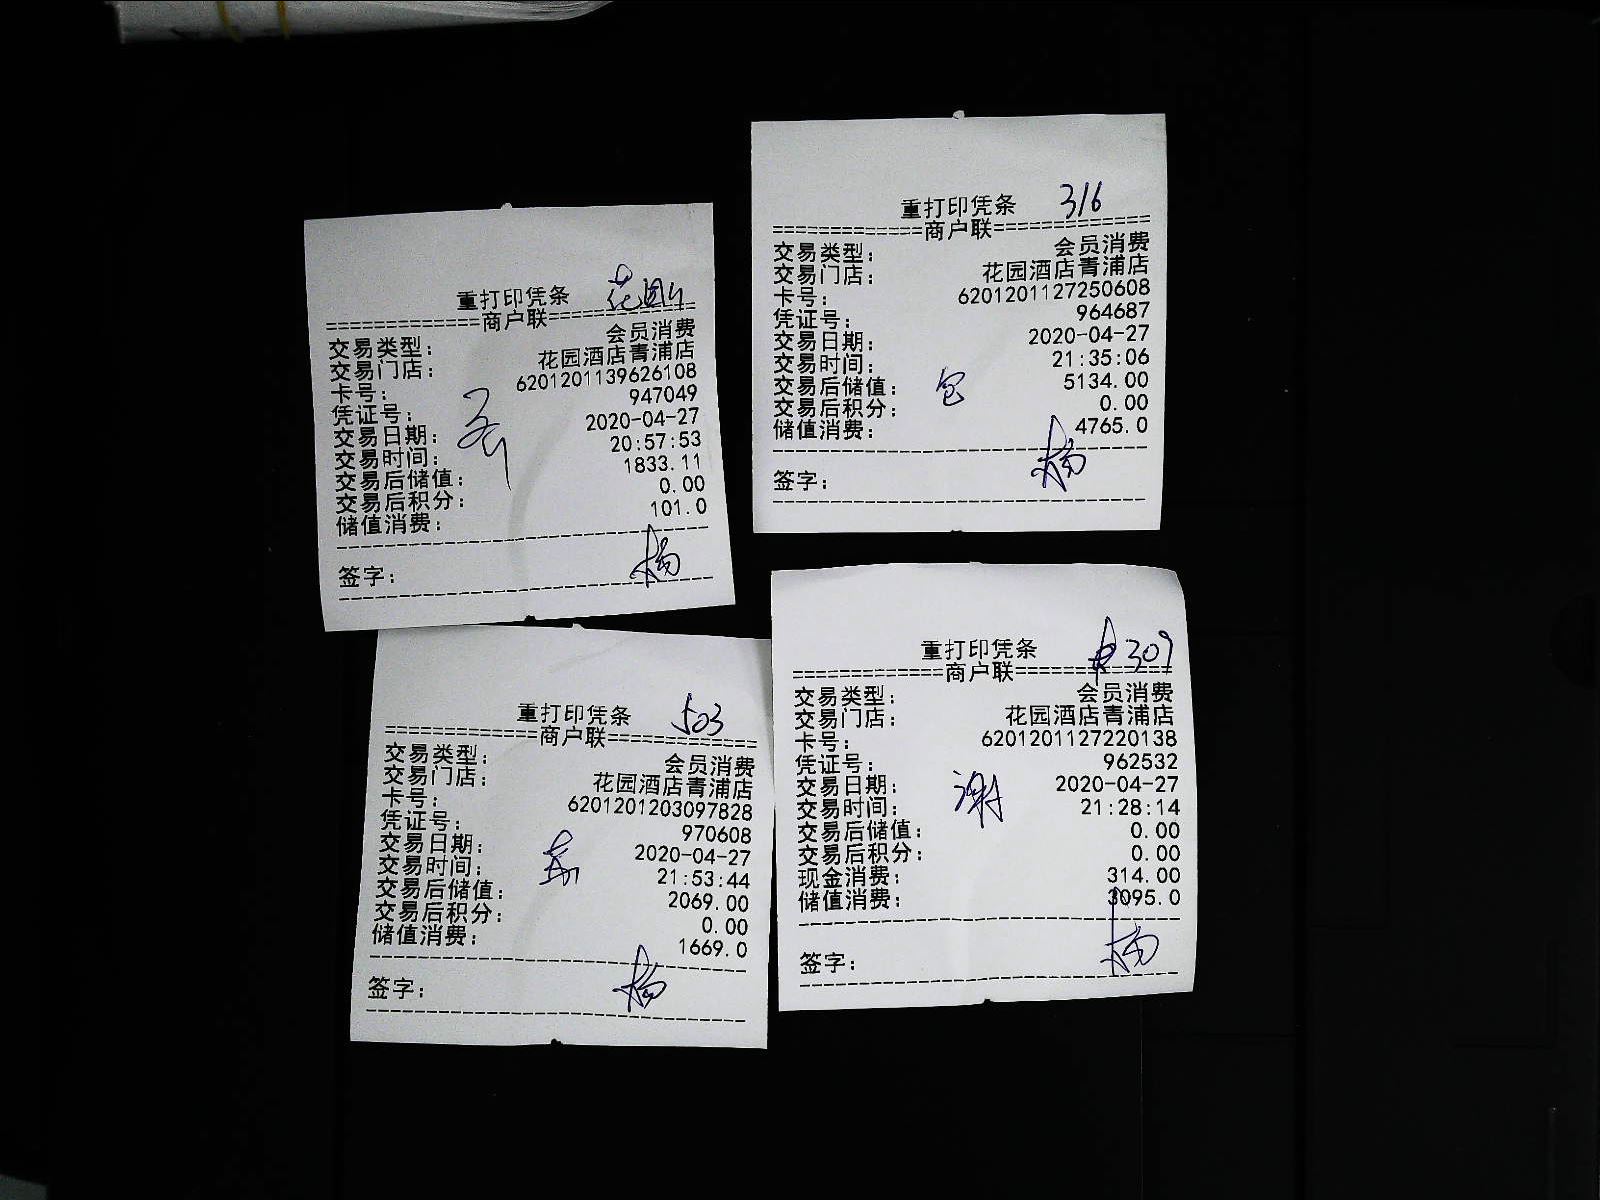 重打印凭条
============商户联============
交易类型： 会员消费
交易门店： 花园酒店青浦店
卡号： 6201201139626108
凭证号： 947049
交易日期： 2020-04-27
交易时间： 20:57:53
交易后储值： 1833.11
交易后积分： 0.00
储值消费： 101.0
签字： 杨
重打印凭条 316
============商户联============
交易类型： 会员消费
交易门店： 花园酒店青浦店
卡号： 6201201127250608
凭证号： 964687
交易日期： 2020-04-27
交易时间： 21:35:06
交易后储值： 5134.00
交易后积分： 0.00
包
储值消费： 4765.0
签字： 杨
重打印凭条 503
============商户联============
交易类型： 会员消费
交易门店： 花园酒店青浦店
卡号： 6201201203097828
凭证号： 970608
交易日期： 2020-04-27
交易时间： 21:53:44
交易后储值： 2069.00
交易后积分： 0.00
储值消费： 1669.0
签字： 杨
重打印凭条 309
============商户联============
交易类型： 会员消费
交易门店： 花园酒店青浦店
卡号： 6201201127220138
凭证号： 962532
交易日期： 2020-04-27
谢
交易时间： 21:28:14
交易后储值： 0.00
交易后积分： 0.00
现金消费： 314.00
储值消费： 3095.0
签字： 杨